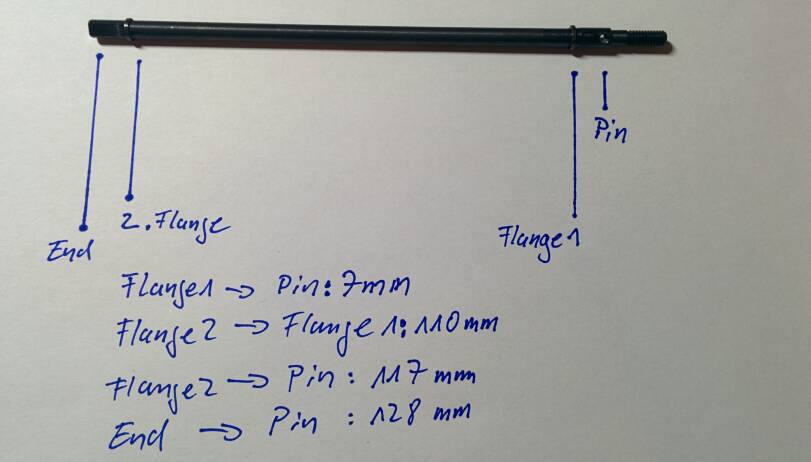 Pin
2. Flange
Flange 1
End
Flange 1 → Pin: 7mm
Flange 2 → Flange 1: 110 mm
Flange 2 → Pin: 117 mm
End → Pin: 128 mm